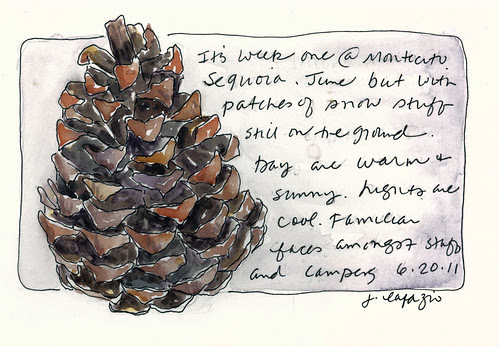 It's week one @ Montecito
Sequoia. June but with
patches of snow stuff
still on the ground.
Day are warm &
sunny. Nights are
cool. Familiar
faces amongst staff
and campers 6.20.11